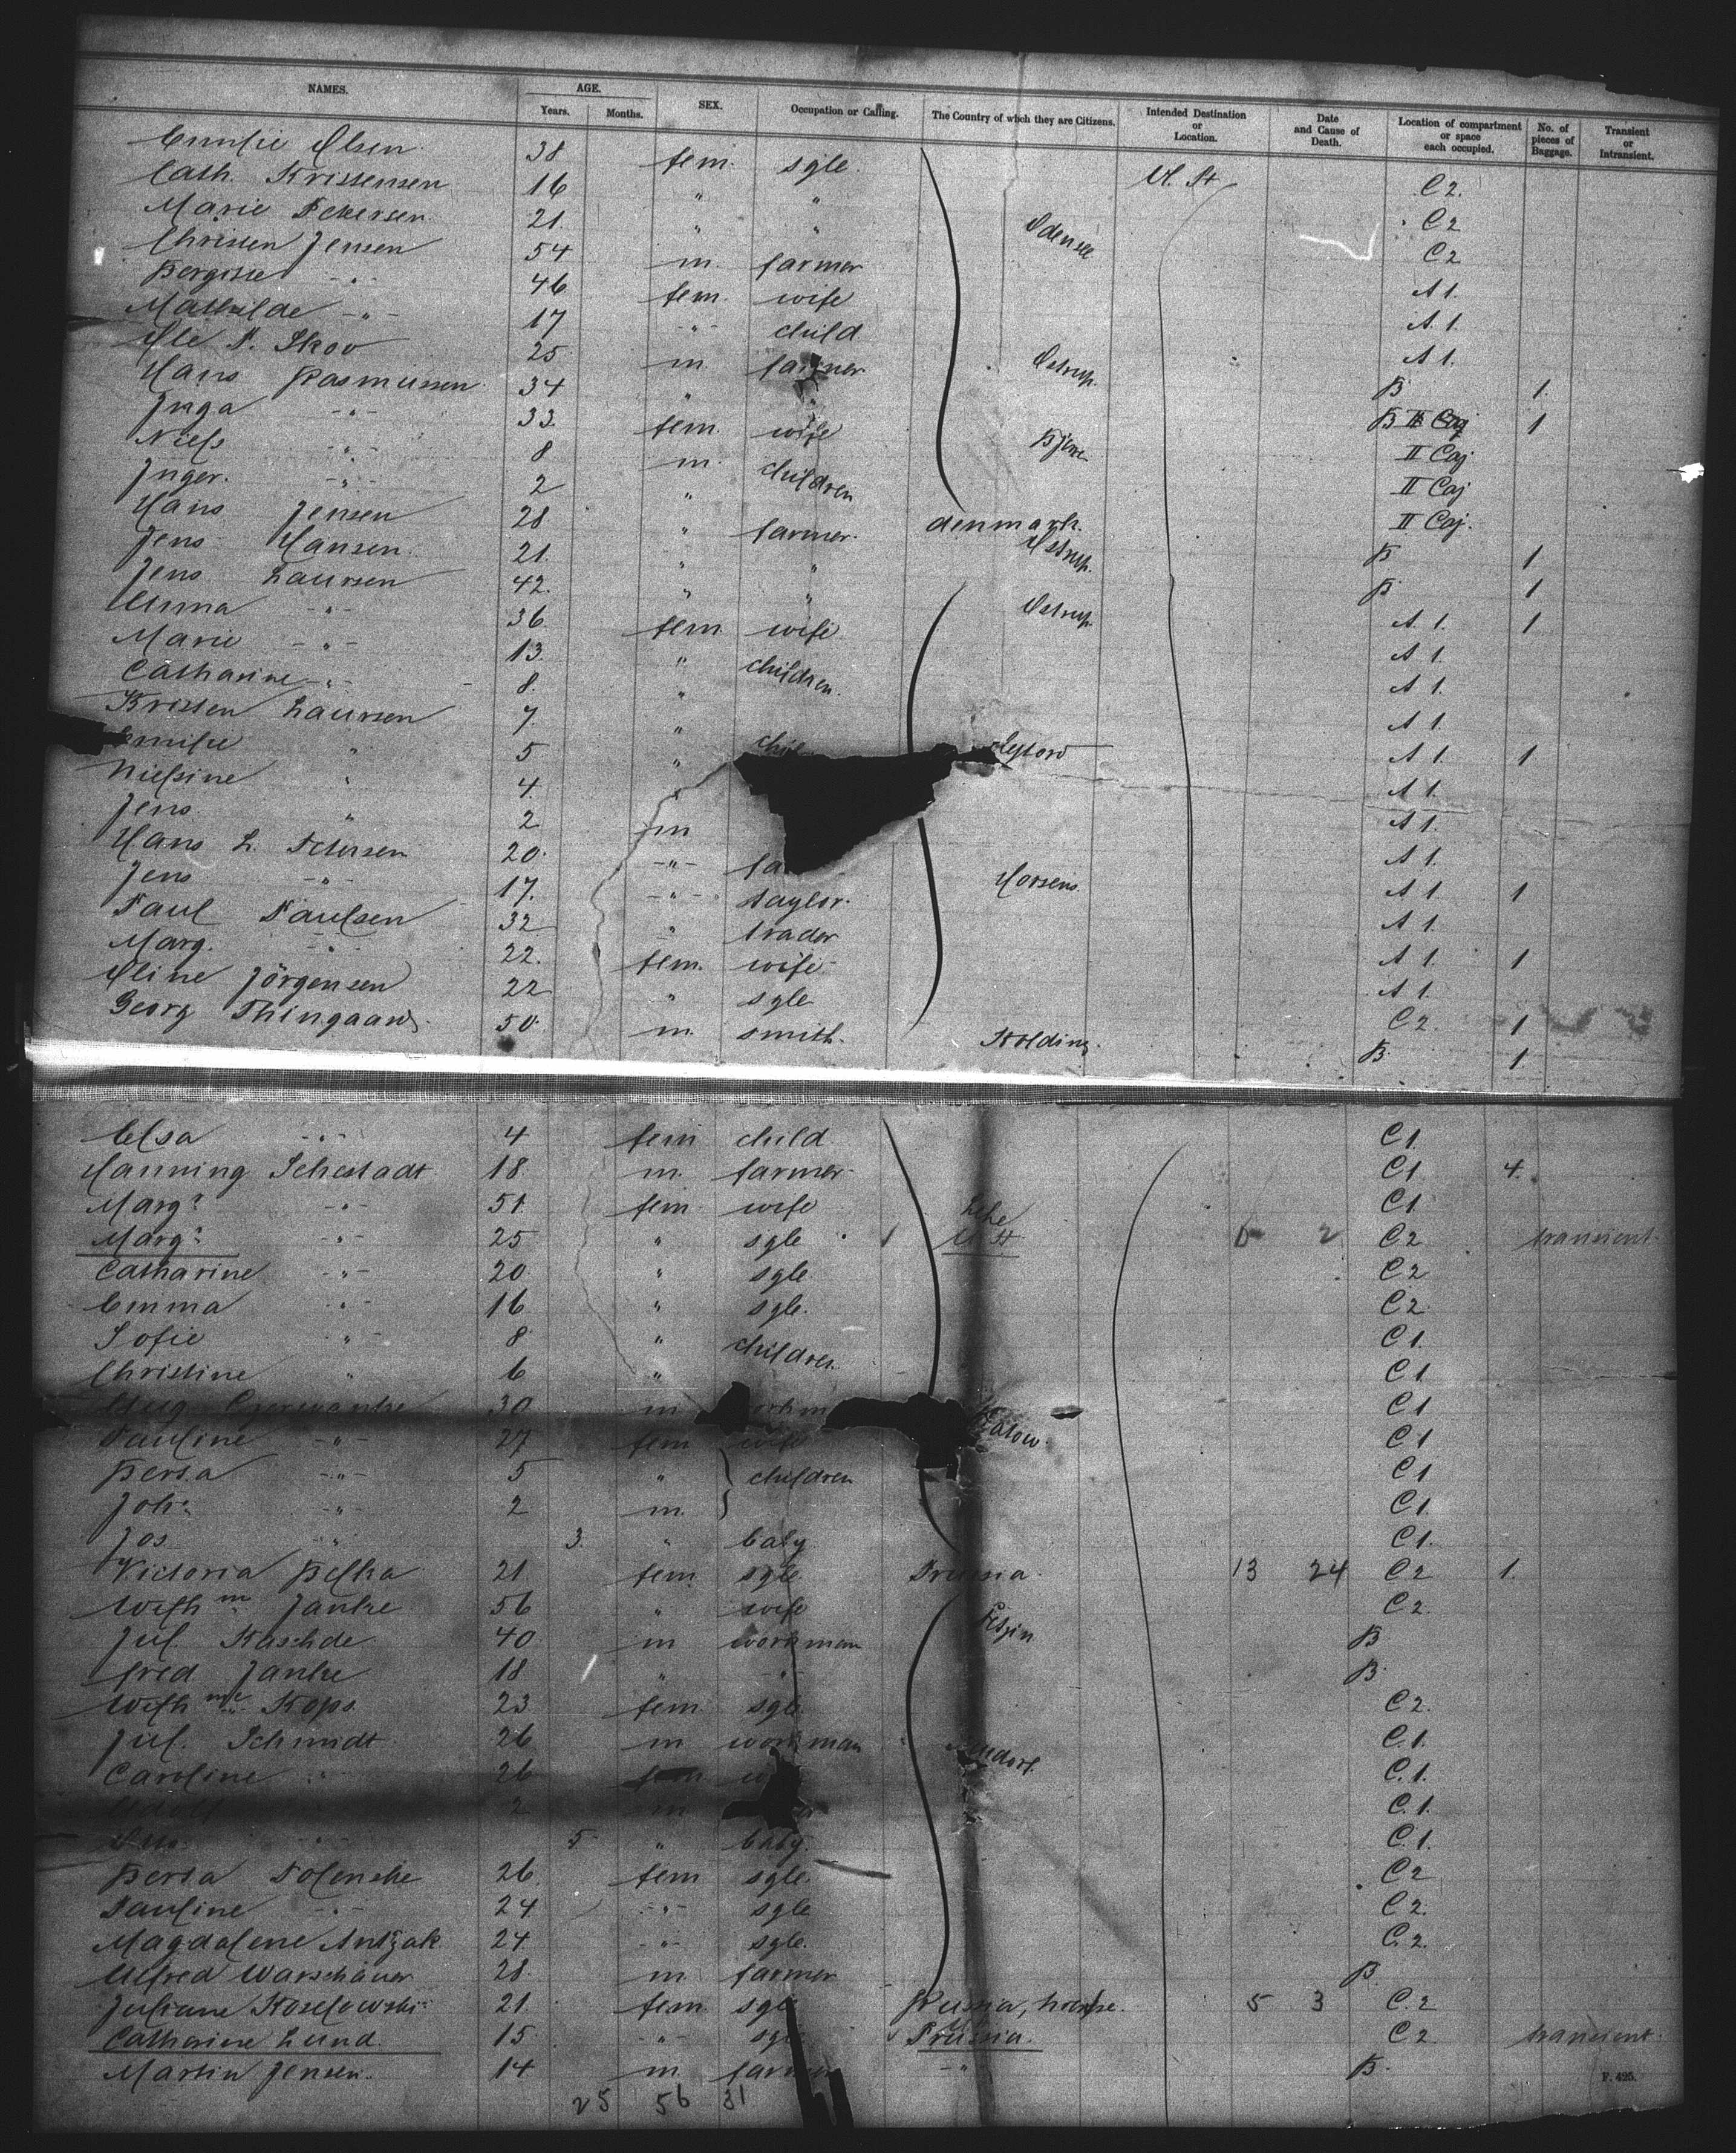 NAMES. AGE. SEX. Occupation or Calling. The Country of which they are Citizens. Intended Destination or Location. Date and Cause of Death. Location of compartment or space each occupied. No. of pieces of Baggage. Transient or Intransient.
Years. Months.
Olsen 38 fem. sgle. U. St C 2.
Cath. Kristensen 16 " " C 2
Marie Petersen 21. " " Odensee C 2
Christen Jensen 54 m. farmer A 1.
-"- 46 fem. wife A. 1.
Mathilde -"- 17 -"- child A 1.
Ole P. Skov 25 m. farmer Ostrup. B 1.
Hans Rasmussen 34 " " B II Caj 1
Inga -"- 33. fem. wife II Caj
Niels -"- 8 m. children II Caj
Inger. -"- 2 " II Caj.
Hans Jensen 28 " farmer. denmark. Ostrup. B 1
Jens Hansen 21. " " B 1
Jens Laursen 42. " " Ostrup. A. 1. 1
Anna -"- 36 fem. wife A 1.
Marie -"- 13. " children. A 1.
Catharine -"- 8. " A 1.
Kristen Laursen 7. " A 1. 1
" 5 " A 1.
Nielsine " 4. A 1.
Jens " 2 m A 1.
Hans L. Petersen 20. -"- Horsens A 1 1
Jens -"- 17. -"- taylor. A 1.
Paul Paulsen 32 " trader A 1. 1
Marg. -"- 22. fem. wife A 1.
Oline Jörgensen 22 " sgle C 2. 1
Georg Thingaard 50. m. smith. Kolding. B 1
Elsa -"- 4 fem child C 1
Hanning Schestadt 18. m. farmer C 1. 4.
Marg? -"- 51. fem. wife Lehe C 1
Marg? -"- 25 " sgle U St 6 2 C 2 transient.
Catharine -"- 20 " sgle. C 2
Emma -"- 16 " sgle. C 2.
Sofie " 8 " children. C 1.
Christine " 6 " C 1.
Aug Czerwanke 30 m C 1
Pauline " 27 fem wife C 1
Berta -"- 5 " children C 1
Joh? -"- 2 m. C 1.
Jos " 3. " baby C 1.
Victoria Belka 21 fem sgle Prussia. 13 24 C 2 1.
Wilh m Janke 56 " wife C 2.
Jul. Kaschde 40 m workman B
fred Janke 18 " -"- B
Wilh me Kops 23 fem sgle. C 2.
Jul. Schmidt 26 m workman C. 1.
Caroline -"- 26 fem C. 1.
Adolf 2 m C. 1.
-"- 5 " baby. C. 1.
Berta Polenske 26. fem sgle. C 2
Pauline -"- 24 -"- sgle C 2.
Magdalene Antzak 24. -"- sgle. C. 2.
Alfred Warschauer 28. m farmer B.
Juliane Koselowski 21 fem. sgle Russia, 5 3 C. 2
Catharine Lund. 15. -"- sgle Prussia. C 2 transient.
Martin Jensen. 14 m farmer -"- B.
25 56 31
F. 425.